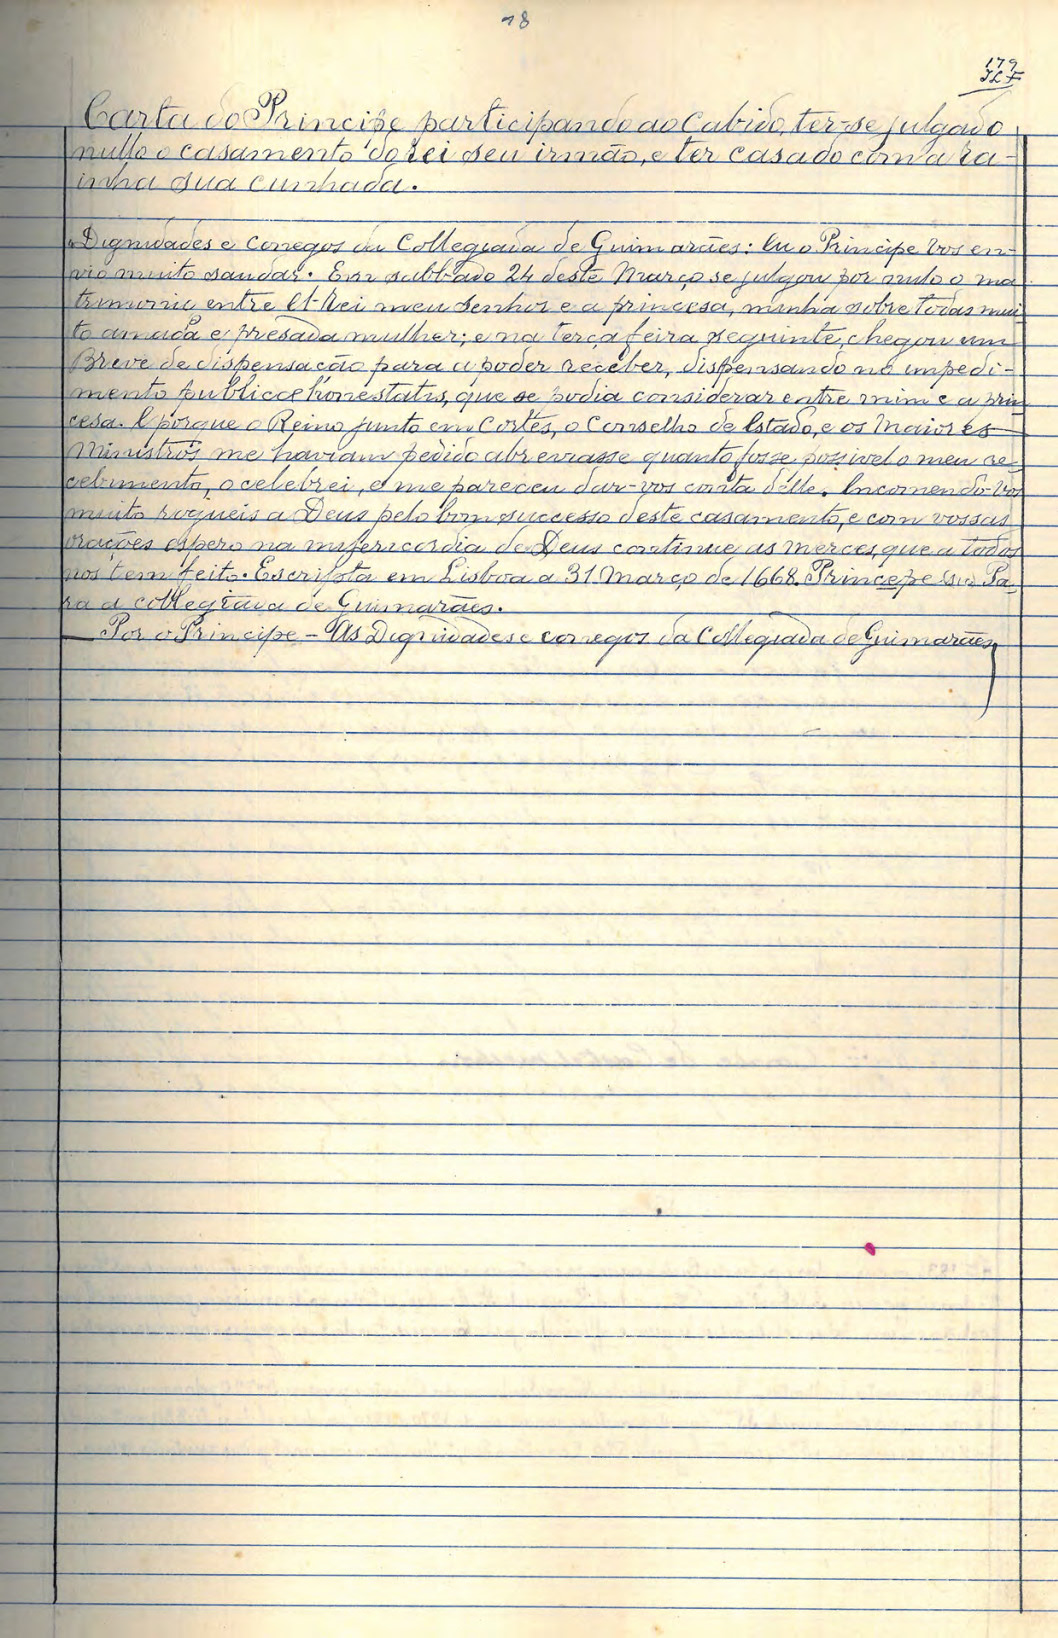 18
179
Carta do Principe participando ao Cabido, ter-se julgado
nullo o casamento do rei seu irmão, e ter casado com a ra-
inha sua cunhada.
Dignidades e Conegos da Collegiada de Guimarães: Eu o Principe vos en-
vio muito saudar. Em sabbado 24 deste Março se julgou por nulo o ma
trimonio entre El-Rei meu senhor e a princesa, minha sobre todas mui
to amada e presada mulher; e na terça feira seguinte, chegou um
Breve de dispensação para a poder receber, dispensando no impedi-
mento publicae honestatis, que se podia considerar entre mim e a prin
cesa. E porque o Reino junto em Cortes, o Conselho de Estado, e os maiores
Ministros me haviam pedido abreviasse quanto fosse possivel o meu re-
cebimento, o celebrei, e me pareceu dar-vos conta délle. Encomendo-vos
muito rogueis a Deus pelo bom successo deste casamento, e com vossas
orações espero na misericordia de Deus continue as mercês, que a todos
nos tem feito. Escripta em Lisboa a 31 Março de 1668. Princepe Pa-
ra a collegiada de Guimarães.
Por o Principe - Ás Dignidades e conegos da Collegiada de Guimarães